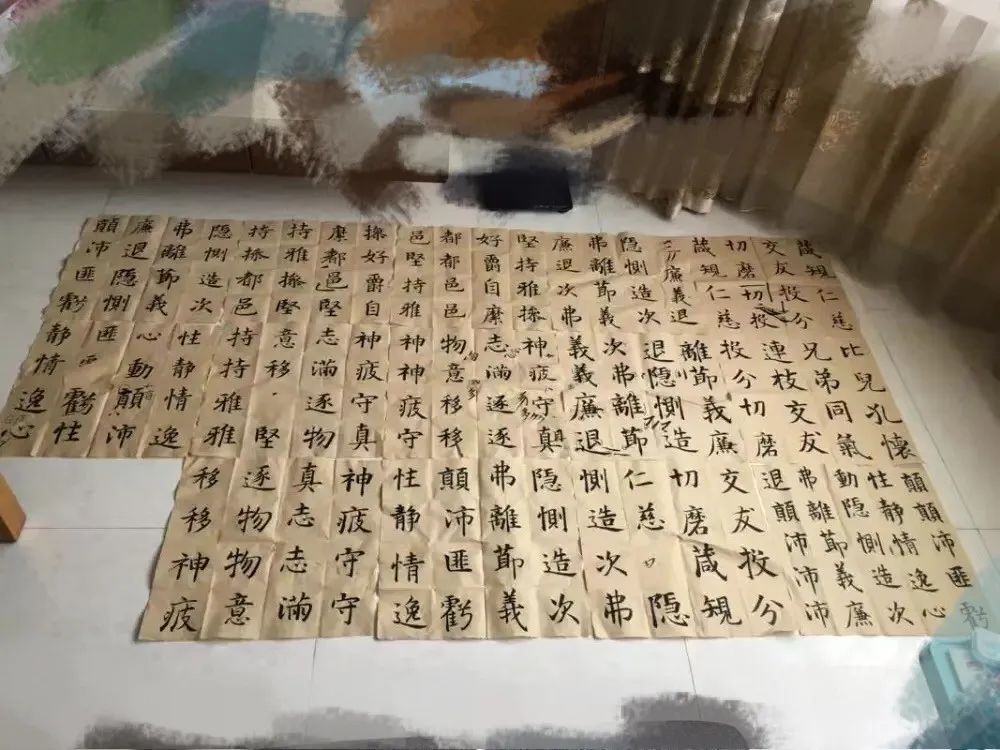 箴規仁慈
交友投分
切磨切投
箴規仁慈
廉義退
隐惻造次
弗離節義
廉退次弗
堅持雅操
好爵自縻
都都邑邑
邑堅持雅
操好爵自
縻都邑堅
持雅操堅
持操都邑
隐惻造次
弗離節義
廉退隐惻
顛沛匪虧
比兒孔懷
兄弟同氣
連枝交友
投分切磨
離節義廉
退隐惻造
次弗離節
義義廉退
神疲守真
志滿逐逐
物意移移
神神疲守
神疲守真
志滿逐物
意移堅
持持雅雅
性静情逸
心動顛沛
匪虧性
静情逸心
顛顛沛匪虧
性静情逸心
動隐惻造次
弗離節義廉
退顛沛沛沛
交友投分
切磨箴規
仁慈隐
惻造次弗
隐惻造次
弗離節義
顛沛匪虧
性静情逸
神疲守守
真志志滿
逐物物意
移移神疲